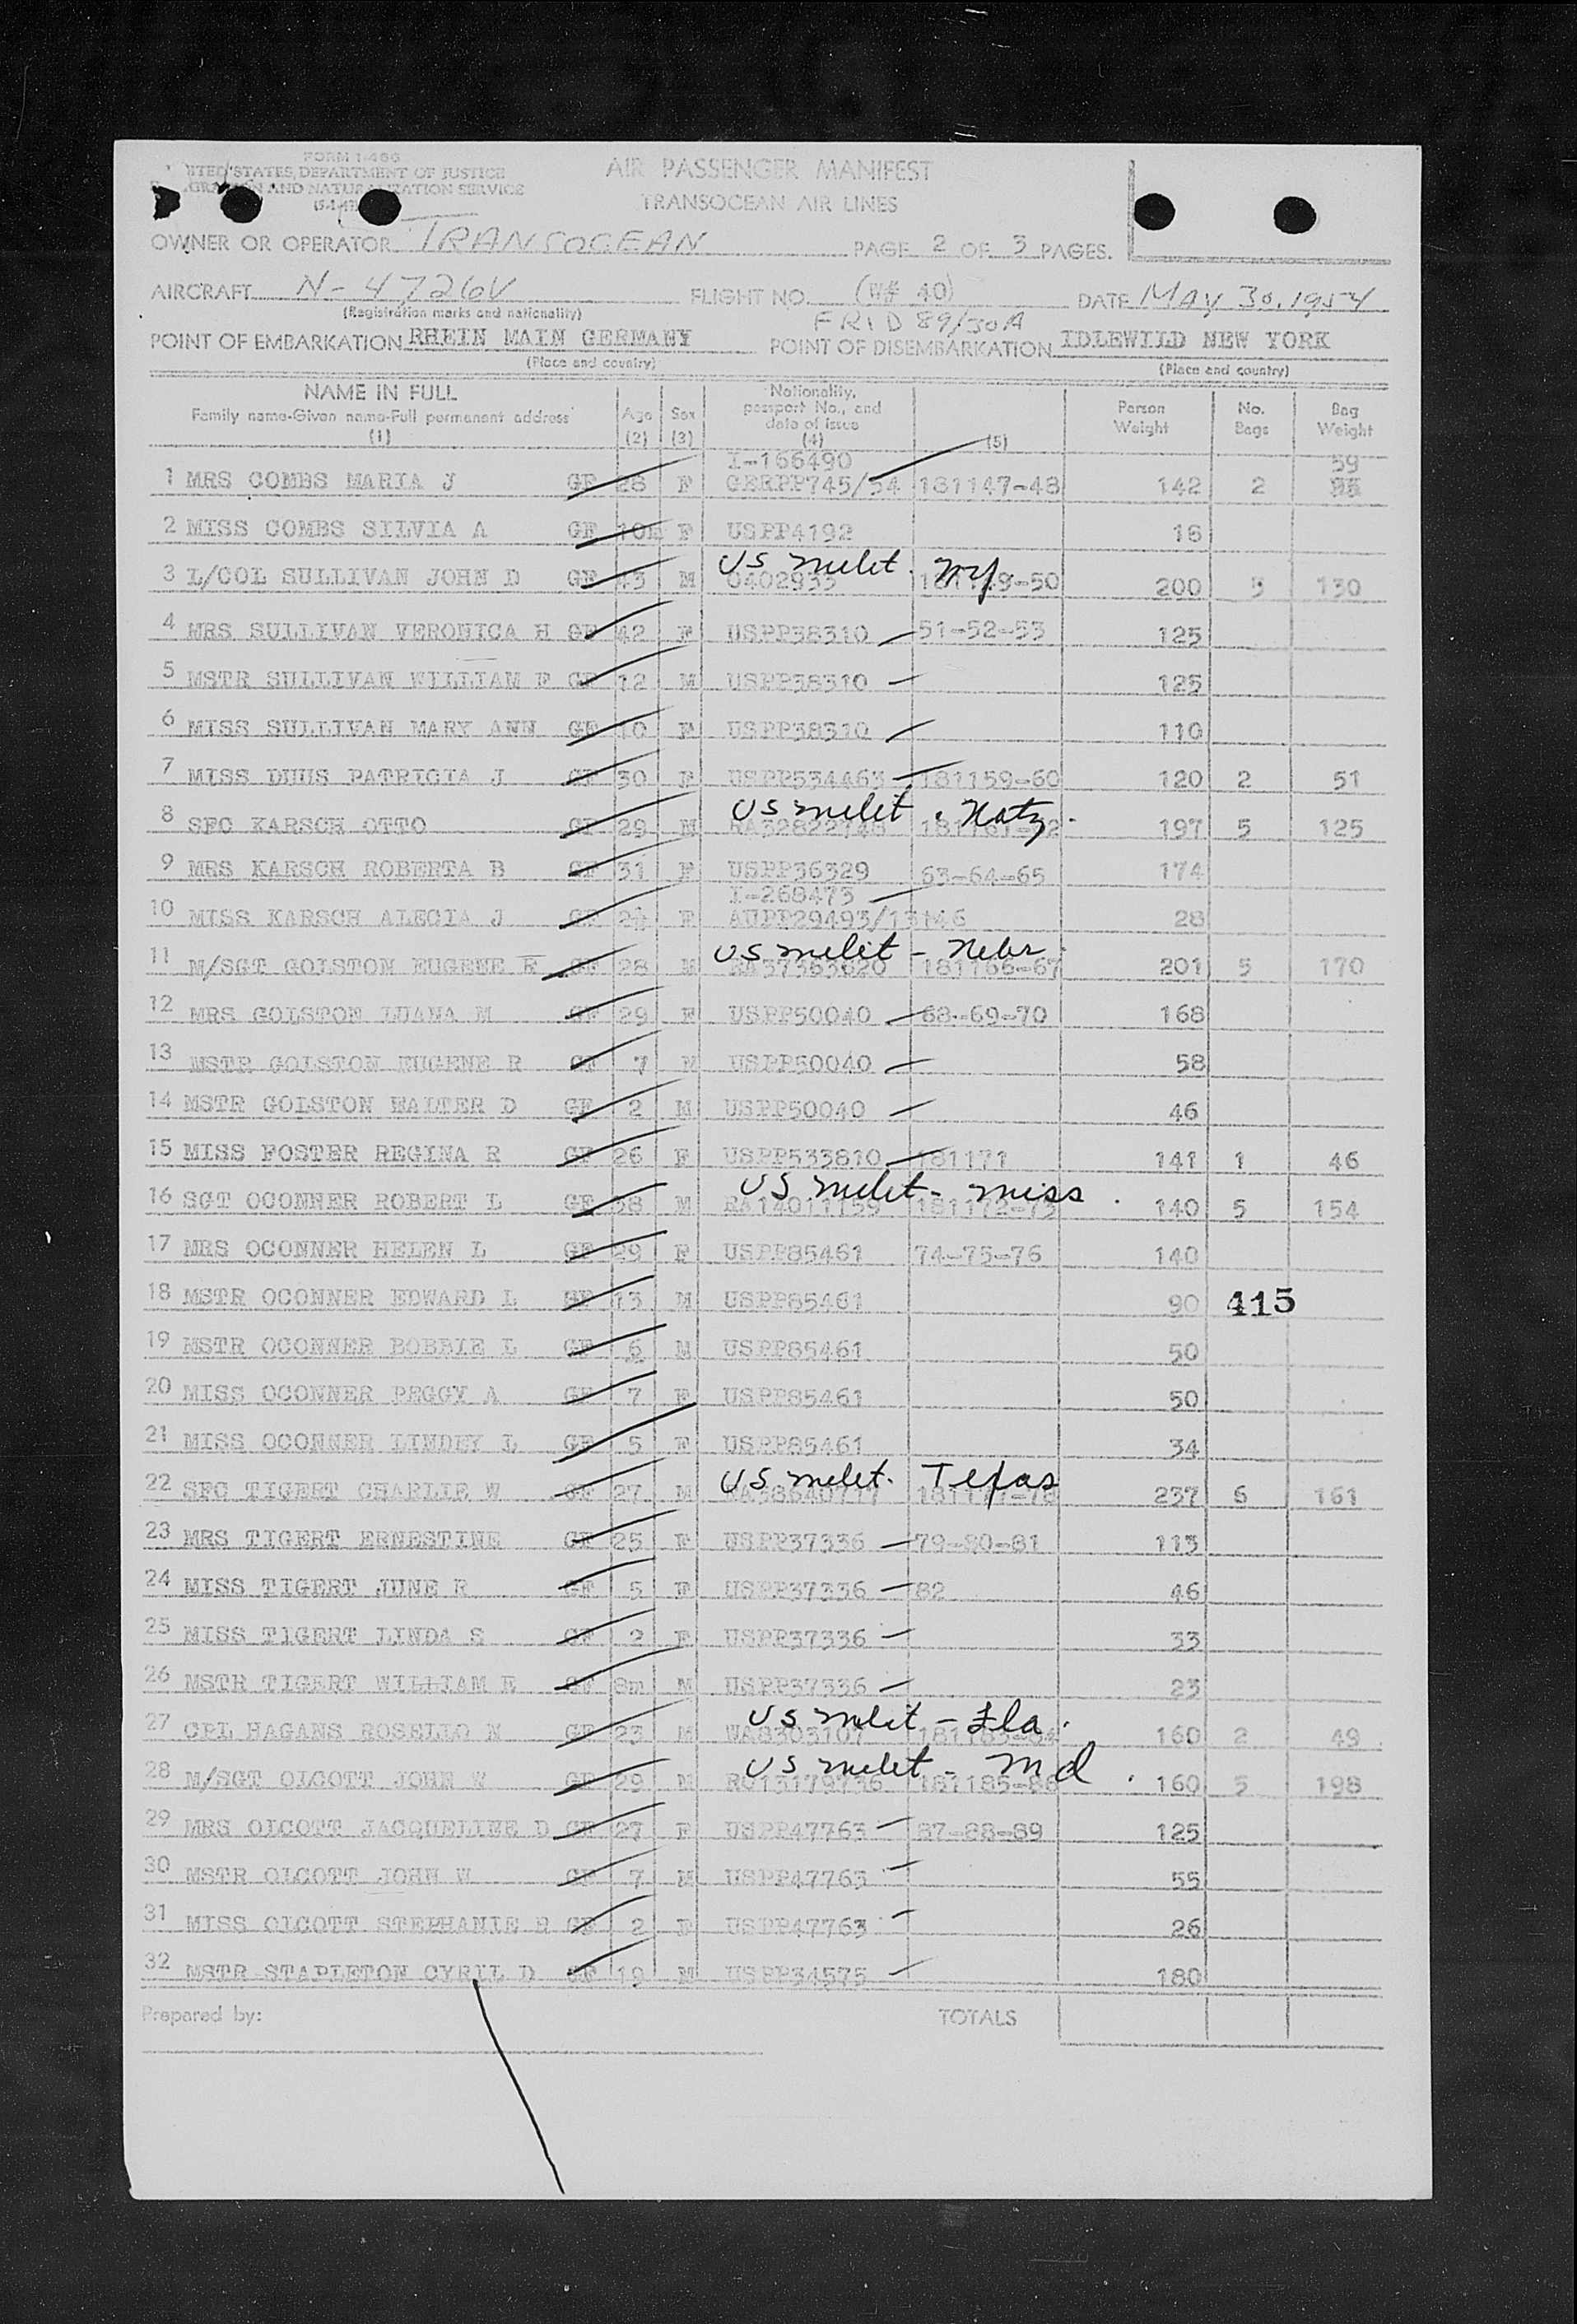 FORM I-466
UNITED STATES, DEPARTMENT OF JUSTICE
AND NATURALIZATION SERVICE
AIR PASSENGER MANIFEST
TRANSOCEAN AIR LINES
OWNER OR OPERATOR TRANSOCEAN PAGE 2 OF 3 PAGES.
AIRCRAFT N-4726V FLIGHT NO. (W# 40) DATE MAY 30, 1954
(Registration marks and nationality) FRID 89/30A
POINT OF EMBARKATION RHEIN MAIN GERMANY POINT OF DISEMBARKATION IDLEWILD NEW YORK
(Place and country) (Place and country)
NAME IN FULL Nationality, passport No., and date of issue Person Weight No. Bags Bag Weight
Family name-Given name-Full permanent address Age Sex
(1) (2) (3) (4) (5)
I-166490 59
1 MRS COMBS MARIA J GF 28 F GERPP745/54 181147-48 142 2
2 MISS COMBS SILVIA A GF 10m F USPP4192 16
US milit. NY.
3 L/COL SULLIVAN JOHN D GF 43 M 0402933 181149-50 200 5 130
4 MRS SULLIVAN VERONICA H GF 42 F USPP38310 51-52-53 125
5 MSTR SULLIVAN WILLIAM F GF 12 M USPP38310 125
6 MISS SULLIVAN MARY ANN GF 10 F USPP38310 110
7 MISS DUUS PATRICIA J GF 30 F USPP534463 181159-60 120 2 51
US milit.
8 SFC KARSCH OTTO GF 29 M RA32822748 181161-62 197 5 125
9 MRS KARSCH ROBERTA B GF 31 F USPP36329 63-64-65 174
I-268473
10 MISS KARSCH ALECIA J GF 2½ F AUPP29493/13146 28
US milit - Nebr.
11 M/SGT GOLSTON EUGENE R GF 28 M RA37363620 181166-67 201 5 170
12 MRS GOLSTON LUANA M GF 29 F USPP50040 68-69-70 168
13 MSTR GOLSTON EUGENE R GF 7 M USPP50040 58
14 MSTR GOLSTON WALTER D GF 2 M USPP50040 46
15 MISS FOSTER REGINA R GF 26 F USPP533810 181171 141 1 46
US milit - Miss.
16 SGT OCONNER ROBERT L GF 38 M RA14011159 181172-73 140 5 154
17 MRS OCONNER HELEN L GF 29 F USPP85461 74-75-76 140
18 MSTR OCONNER EDWARD L GF 13 M USPP85461 90 415
19 MSTR OCONNER BOBBIE L GF 6 M USPP85461 50
20 MISS OCONNER PEGGY A GF 7 F USPP85461 50
21 MISS OCONNER LINDEY L GF 5 F USPP85461 34
US milit. Texas
22 SFC TIGERT CHARLIE W GF 27 M 181177-78 237 6 161
23 MRS TIGERT ERNESTINE GF 25 F USPP37336 79-80-81 113
24 MISS TIGERT JUNE R GF 5 F USPP37336 82 46
25 MISS TIGERT LINDA S GF 2 F USPP37336 33
26 MSTR TIGERT WILLIAM E GF 8m M USPP37336 23
US milit - Fla.
27 CPL HAGANS ROSELIO N GF 23 M WA8303107 181183-84 160 2 49
US milit - Md.
28 M/SGT OLCOTT JOHN W GF 29 M RO13179736 181185-86 160 5 198
29 MRS OLCOTT JACQUELINE D GF 27 F USPP47763 87-88-89 125
30 MSTR OLCOTT JOHN W GF 7 M USPP47763 55
31 MISS OLCOTT STEPHANIE R GF 2 F USPP47763 26
32 MSTR STAPLETON CYRIL D GF 19 M USPP34575 180
Prepared by: TOTALS